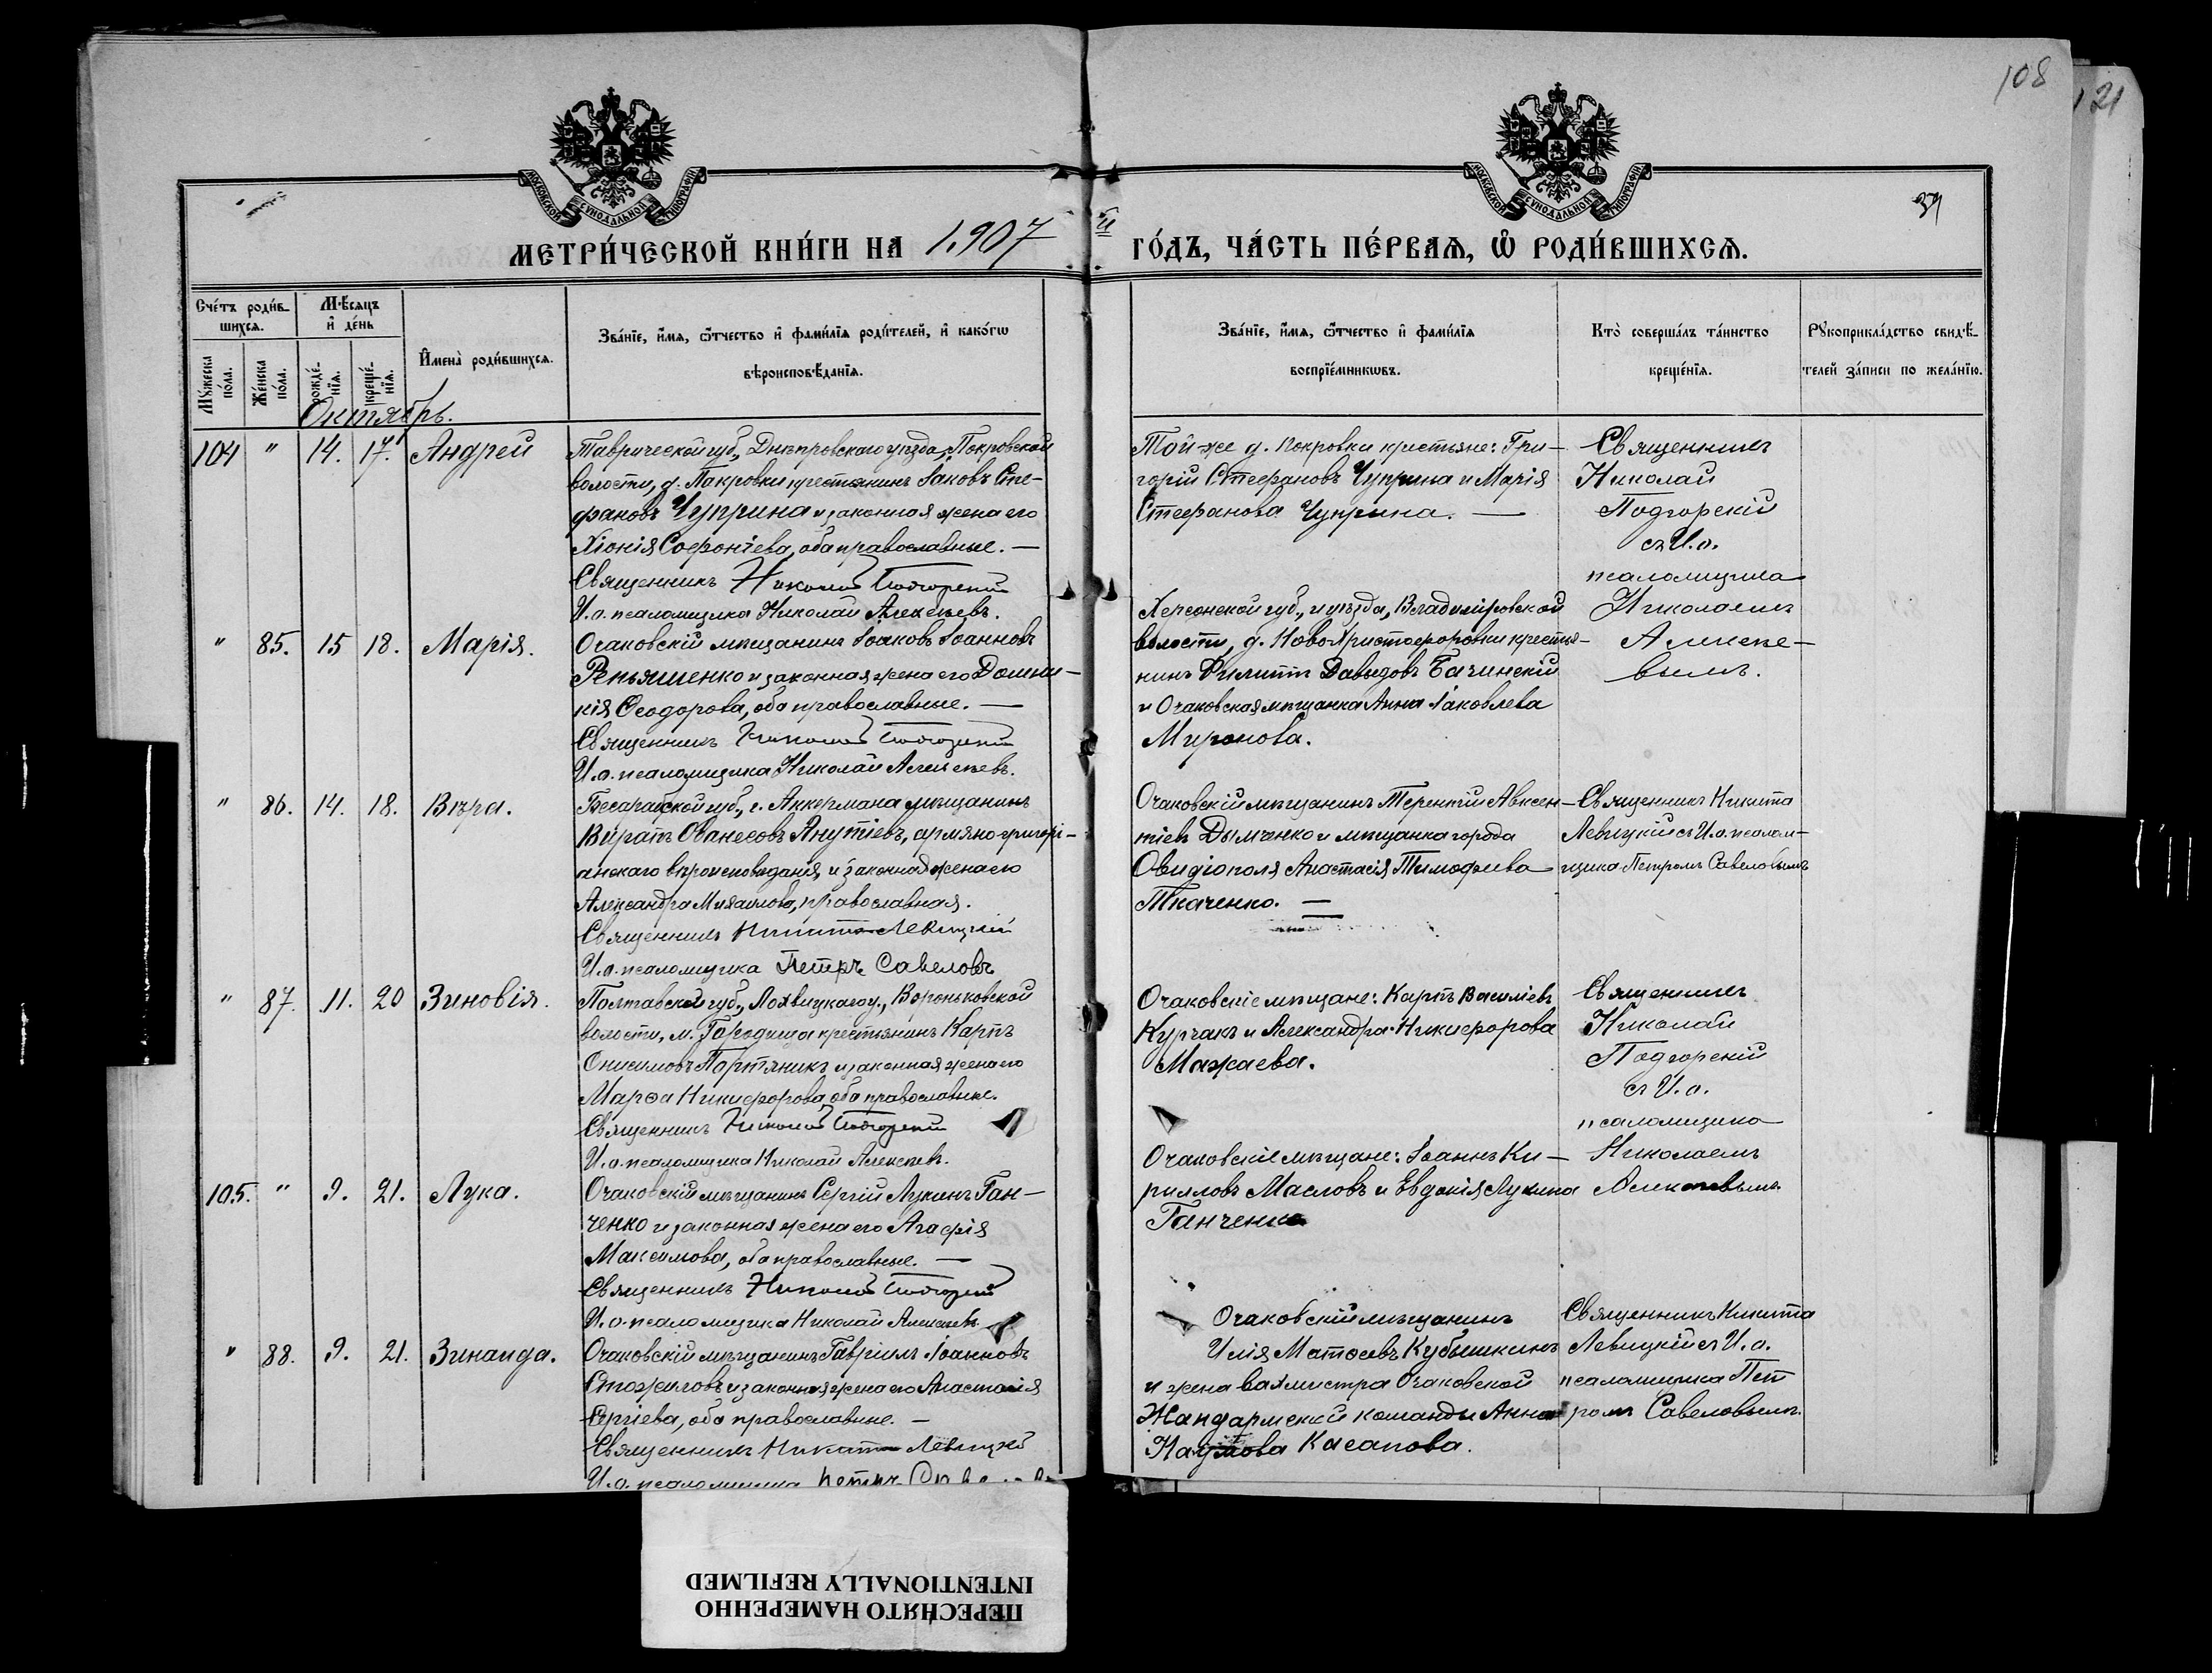 108
121
39
МОСКОВСКОЙ СѴНОДАЛЬНОЙ ТИПОГРАФІИ
МОСКОВСКОЙ СѴНОДАЛЬНОЙ ТИПОГРАФІИ
МЕТРИ́ЧЕСКОЙ КНИ́ГИ НА 1907 й ГО́ДЪ, ЧА́СТЬ ПЕ́РВАѦ, Ѽ РОДИ́ВШИХСѦ.
Сче́тъ роди́в-
шихсѧ.
Мꙋ́жеска по́ла.
Же́нска по́ла.
Мѣ́сѧцъ
и҆ де́нь
рожде́-
нїѧ.
креще́-
нїѧ.
И҆мена̀ роди́вшихсѧ.
Зва́нїе, и҆́мѧ, ѻ҆́тчество и҆ фами́лїѧ роди́телей, и҆ како́гѡ
вѣроисповѣ́данїѧ.
Зва́нїе, и҆́мѧ, ѻ҆́тчество и҆ фами́лїѧ
воспрїе́мникѡвъ.
Кто̀ соверша́лъ та́инство
креще́нїѧ.
Рꙋкоприкла́дство свидѣ́-
телей за́писи по жела́нїю.
Октябрь.
104 " 14. 17. Андрей
Таврической губ., Днѣпровскаго уѣзда, Покровской
волости, д. Покровки крестьянинъ Іаковъ Сте-
фановъ Чуприна и законная жена его
Хіонія Софоніева, оба православные. —
Священникъ Николай Подгорскій
И. о. псаломщика Николай Алексѣевъ.
Той-же д. Покровки крестьяне: Гри-
горій Стефановъ Чуприна и Марія
Стефанова Чуприна. —
Священникъ
Николай
Подгорскій
съ И. о.
псаломщика
Николаемъ
Алексѣе-
вымъ.
" 85. 15 18. Марія.
Очаковскій мѣщанинъ Іаковъ Іоанновъ
Репьяшенко и законная жена его Домни-
кія Ѳеодорова, оба православные. —
Священникъ Николай Подгорскій
И. о. псаломщика Николай Алексѣевъ.
Херсонской губ., и уѣзда, Владиміровской
волости, д. Новохристофоровки крестья-
нинъ Филиппъ Давыдовъ Бачинскій
и Очаковская мѣщанка Анна Іаковлева
Миронова.
" 86. 14. 18. Вѣра.
Бесарабской губ., г. Аккермана мѣщанинъ
Вирапъ Ованесовъ Анутіевъ, армяно-григорі-
анскаго вѣроисповѣданія, и законная жена его
Александра Михаилова, православная.
Священникъ Никита Левицкій
И. о. псаломщика Петръ Савеловъ
Очаковскій мѣщанинъ Терентій Авксен-
тіевъ Дымченко и мѣщанка города
Овидіополя Анастасія Тимофеева
Ткаченко. —
Священникъ Никита
Левицкій съ И. о. псалом-
щика Петромъ Савеловымъ
" 87. 11. 20 Зиновія.
Полтавской губ., Лохвицкаго у., Вороньковской
волости, м. Городища крестьянинъ Карпъ
Онисимовъ Портяникъ и законная жена его
Марѳа Никифорова, оба православные.
Священникъ Николай Подгорскій
И. о. псаломщика Николай Алексѣевъ.
Очаковскіе мѣщане: Карпъ Василіевъ
Курчакъ и Александра Никифорова
Мажаева.
Священникъ
Николай
Подгорскій
съ И. о.
псаломщика
Николаемъ
Алексѣевымъ
105. " 9. 21. Лука.
Очаковскій мѣщанинъ Сергій Лукинъ Ган-
ченко и законная жена его Агафія
Максимова, оба православные. —
Священникъ Николай Подгорскій
И. о. псаломщика Николай Алексѣевъ
Очаковскіе мѣщане: Іоаннъ Ки-
рилловъ Масловъ и Евдокія Лукина
Ганченко
" 88. 9. 21. Зинаида.
Очаковскій мѣщанинъ Гавріилъ Іоанновъ
Стожиловъ и законная жена его Анастасія
Сергіева, оба православные. —
Священникъ Никита Левицкій
И. о. псаломщика Петръ Савеловъ
Очаковскій мѣщанинъ
Илія Матѳеевъ Кубышкинъ
и жена вахмистра Очаковской
Жандармской команды Анна
Наумова Касапова.
Священникъ Никита
Левицкій съ И. о.
псаломщика Пет
ромъ Савеловымъ.
ПЕРЕСНЯТО НАМЕРЕННО
INTENTIONALLY REFILMED